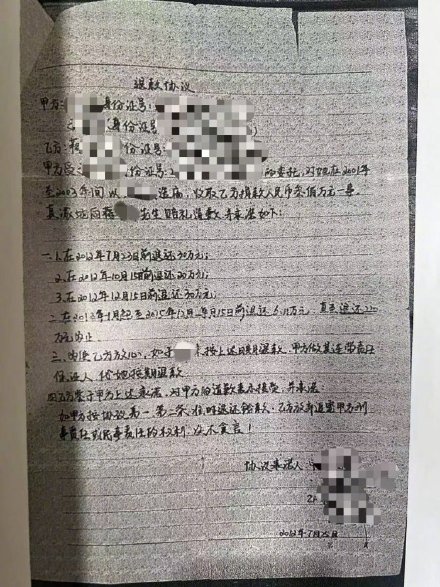 退款协议
甲方: 身份证号:
身份证号
乙方: 身份证号:
甲方 的委托, 对她在2001年
至2003年间以 造庙, 收取乙方捐款人民币 佰万元一事,
真诚地向 先生赔礼道歉并承诺如下:
一、1.在2012年7月23日前退还30万元;
2.在2012年10月15日前退还20万元;
3.在2012年12月15日前退还30万元;
二、在2013年1月起至2015年12月 每月15日前退还 万元, 直至退还220
万元为止.
三、为使乙方放心, 如 未按上述时间退款, 甲方做其连带责任
保证人, 代她按期退款.
四、乙方鉴于甲方上述承诺, 对甲方的道歉表示接受, 并承诺
如甲方按协议第一、第二条准时退还 款, 乙方放弃追究甲方刑
事责任或民事责任的权利, 决不食言!
协议承诺人
2012年7月 日